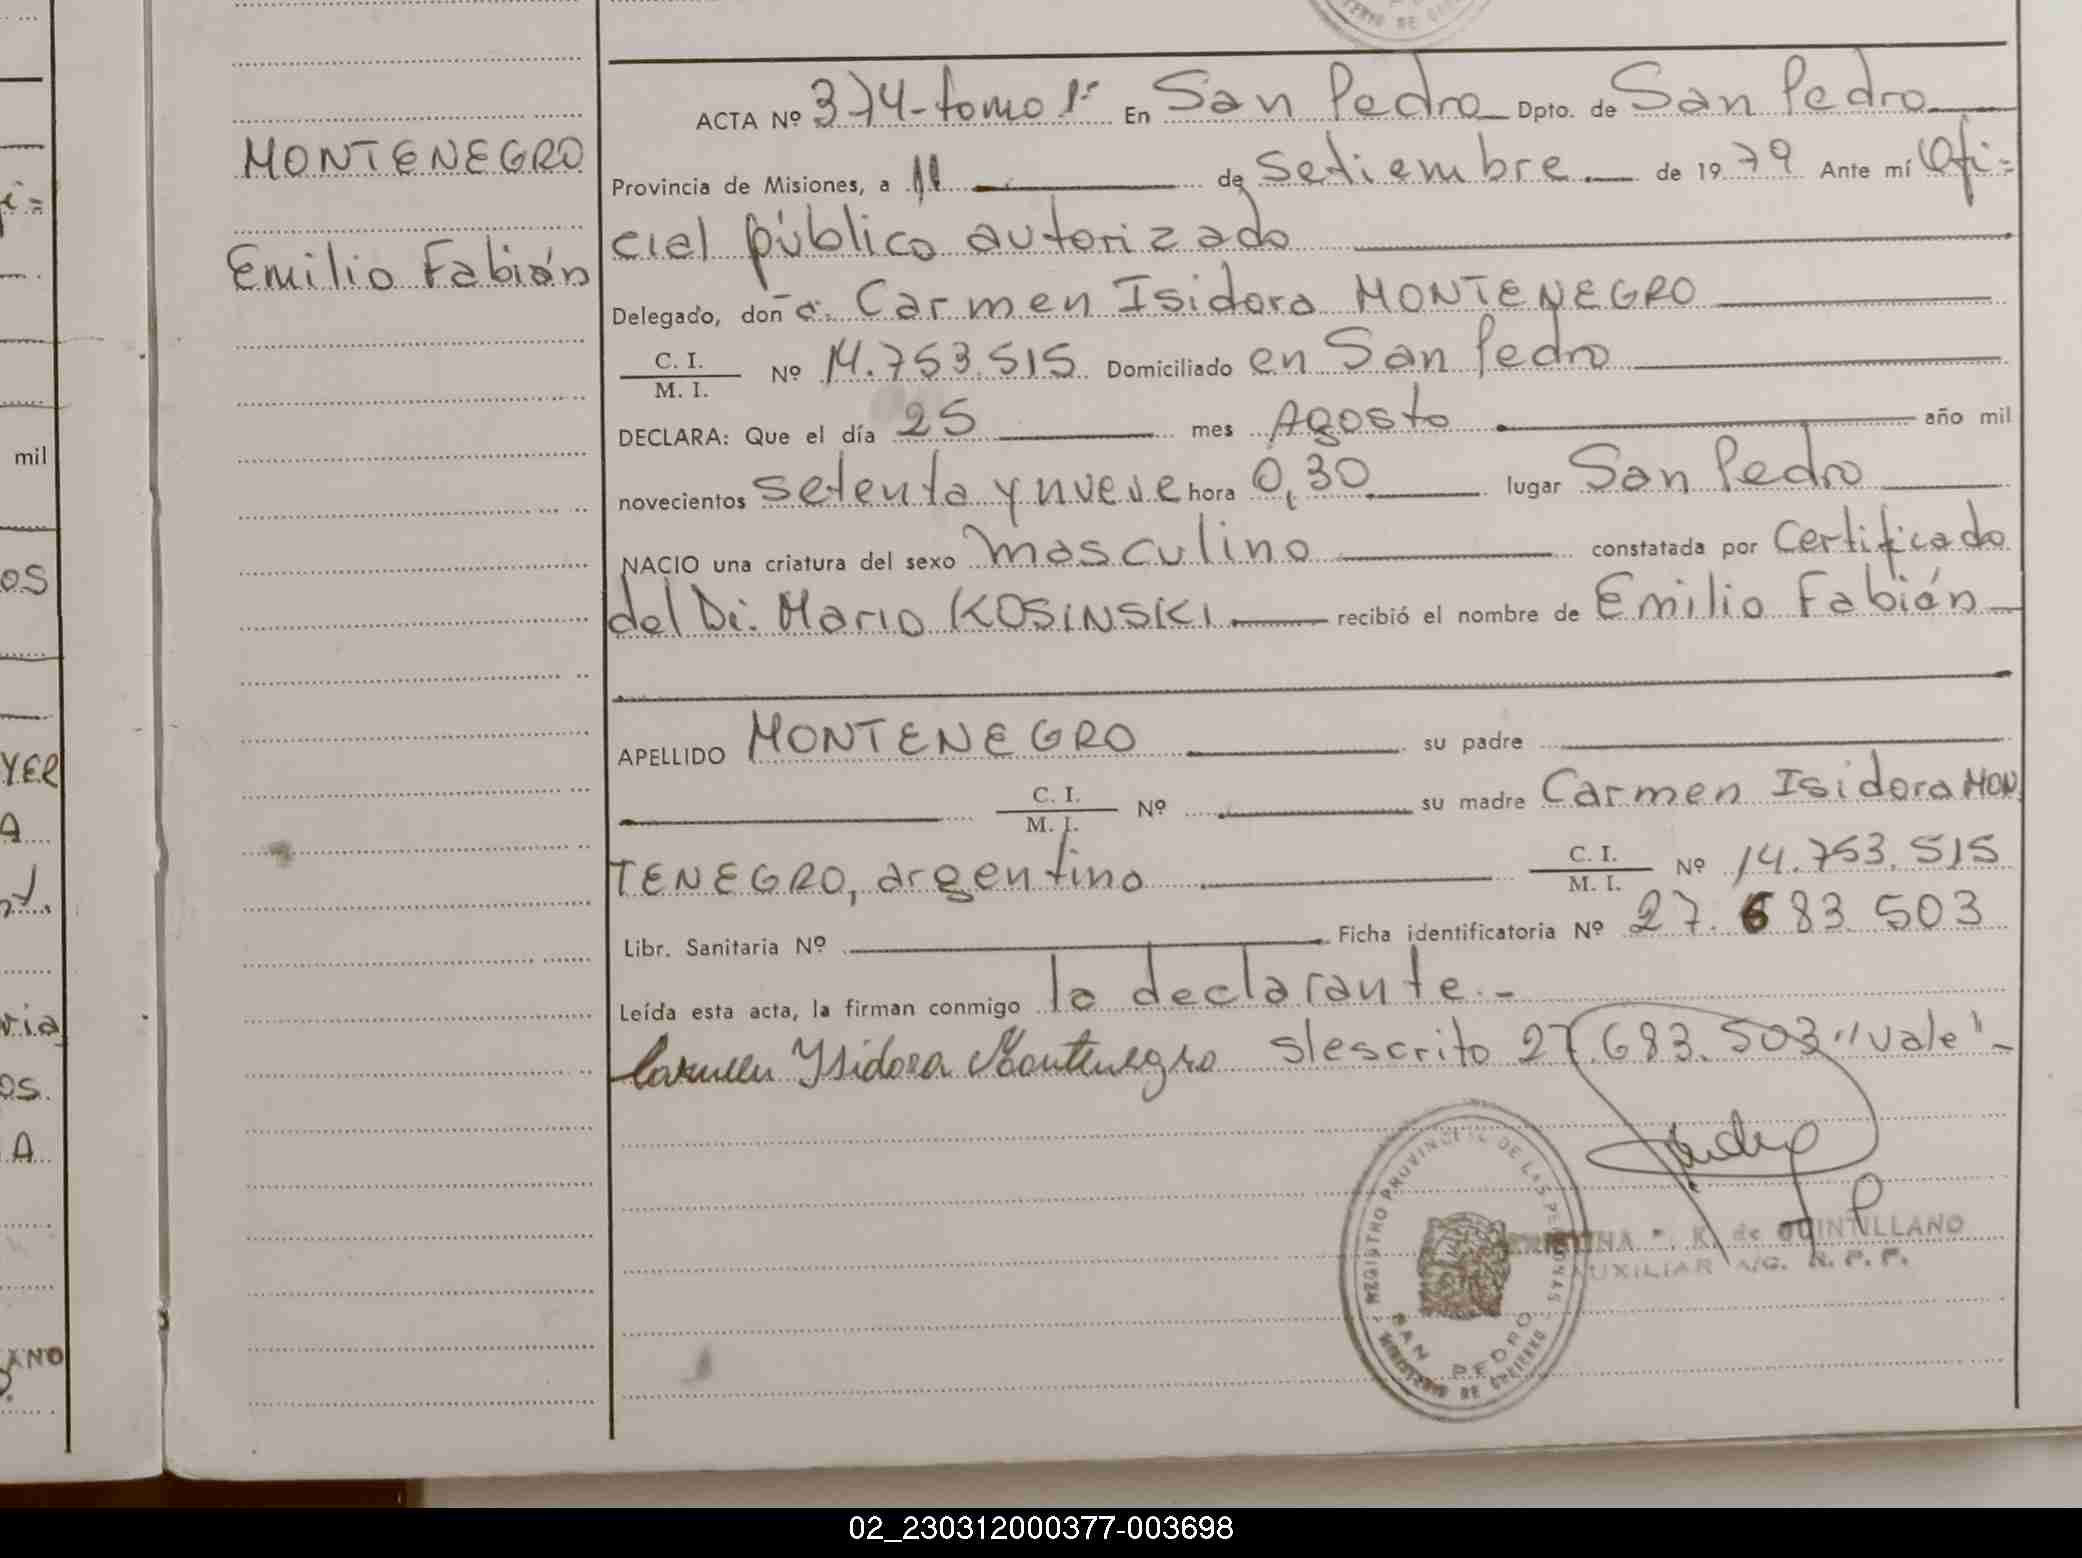 mil
OS
YER
A
ria
os.
A
ANO
MONTENEGRO
Emilio Fabián
ACTA Nº 374-tomo 1º En San Pedro Dpto. de San Pedro
Provincia de Misiones, a 11 de Setiembre de 1979 Ante mí Ofi=
cial público autorizado
Delegado, doña: Carmen Isidora MONTENEGRO
C. I.
M. I. Nº 14.753.515 Domiciliado en San Pedro
DECLARA: Que el día 25 mes Agosto año mil
novecientos setenta y nueve hora 0,30 lugar San Pedro
NACIO una criatura del sexo masculino constatada por Certificado
del Dr. Mario KOSINSKI recibió el nombre de Emilio Fabián
APELLIDO MONTENEGRO su padre
C. I.
M. I. Nº su madre Carmen Isidora MON
TENEGRO, argentino C. I.
M. I. Nº 14.753.515
Libr. Sanitaria Nº Ficha identificatoria Nº 27.683.503
Leída esta acta, la firman conmigo la declarante.-
Carmen Ysidora Montenegro s/escrito 27.683.503 "vale"-
REGISTRO PROVINCIAL DE LAS PERSONAS
SAN PEDRO
MINISTERIO DE GOBIERNO
K. de QUINTILLANO
AUXILIAR A/G. R. P. P.
02_230312000377-003698